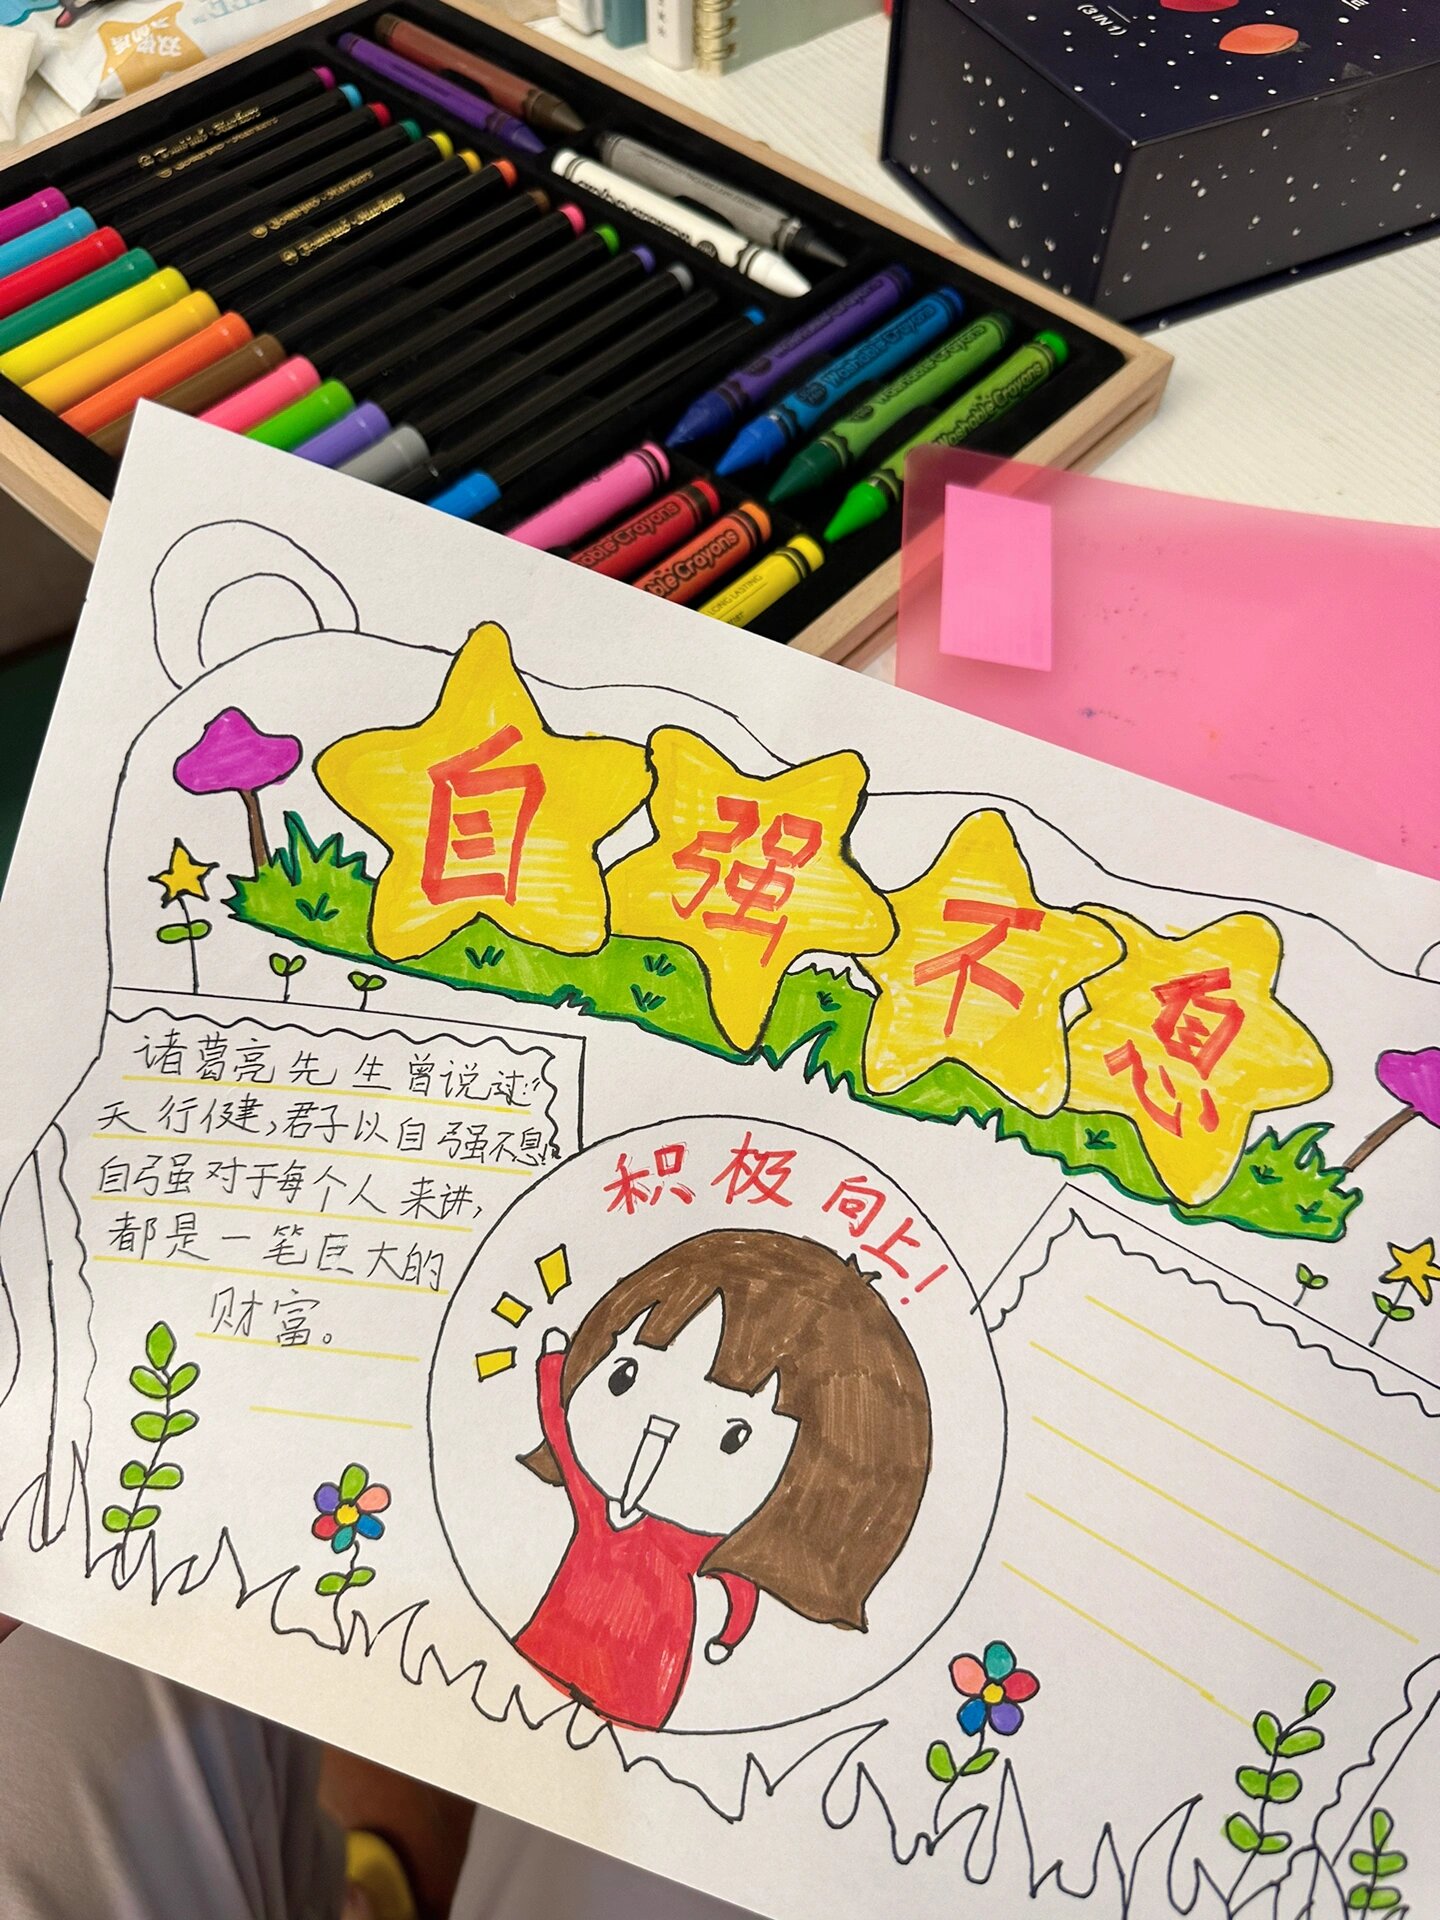 (3 IN 1)
Washable Crayons
Washable Crayons
Washable Crayons
Washable Crayons
able Crayons
ble Crayons
LONG LASTING
自强不息
诸葛亮先生曾说过:
天行健,君子以自强不息。
自强对于每个人来讲,
都是一笔巨大的
财富。
积极向上!